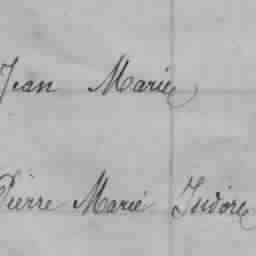 Jean Marie
Pierre Marie Isidore